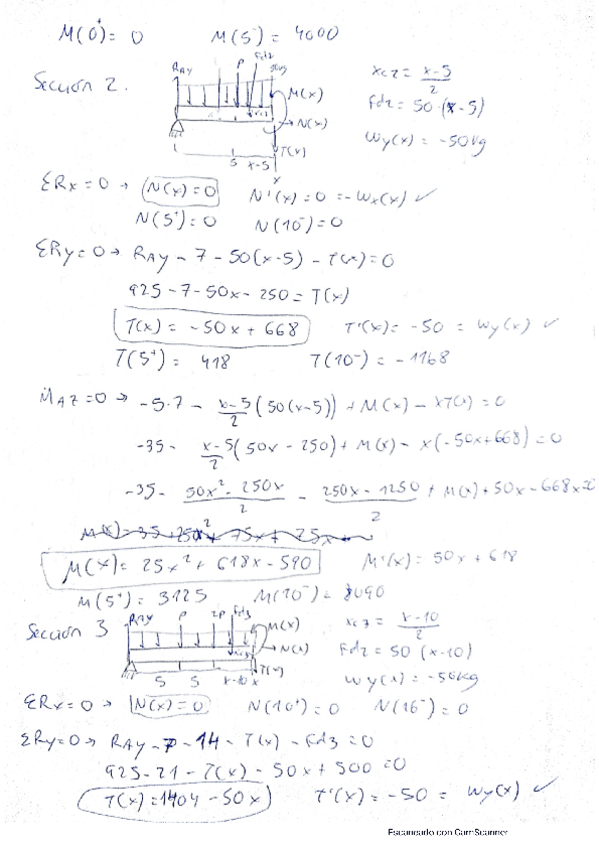 M(0⁺) = 0 M(5⁻) = 4000
Sección 2.
RAy P Fd2 50kg
M(x)
N(x)
T(x)
5 x-5
x
xc2 = x-5/2
Fd2 = 50·(x-5)
Wy(x) = -50kg
ΣRx=0 → N(x)=0 N'(x)=0 =-Wx(x) ✓
N(5⁺)=0 N(10⁻)=0
ΣRy=0 → RAy - 7 - 50(x-5) - T(x)=0
925-7-50x-250=T(x)
T(x) = -50x+668 T'(x)= -50 = Wy(x) ✓
T(5⁺)= 418 T(10⁻) = -1168
MAZ=0 → -5·7 - x-5/2 (50(x-5)) + M(x) - xT(x)=0
-35 - x-5/2 (50x-250) + M(x) - x(-50x+668)=0
-35 - 50x²-250x/2 - 250x-1250/2 + M(x)+50x-668x=0
M(x)= 25x²+618x-590 M'(x)= 50x+618
M(5⁺)= 3125 M(10⁻)= 8090
Sección 3
RAy P 2P Fd3
M(x)
N(x)
T(x)
5 5 x-10 x
xc3 = x-10/2
Fd2 = 50 (x-10)
Wy(x) = -50kg
ΣRx=0 → N(x)=0 N(10⁺)=0 N(16⁻)=0
ΣRy=0 → RAy - 7 - 14 - T(x) - Fd3=0
925-21-T(x)-50x+500=0
T(x)=1404-50x T'(x)= -50 = Wy(x) ✓
Escaneado con CamScanner